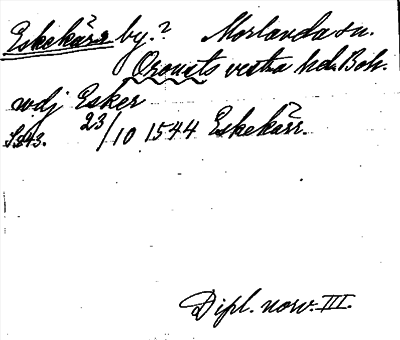 Eskekärr by.? Morlanda sn.
Orousts vestra hd. Boh.
wdj Esker
S343. 23/10 1544 Eskekärr.
Dipl. norv. III.